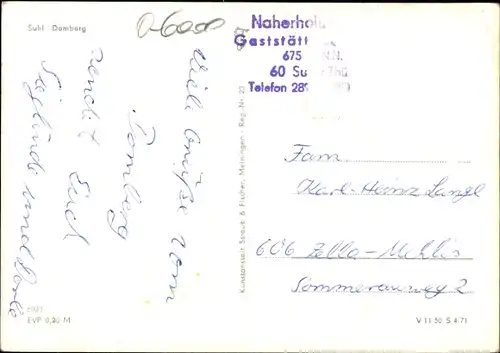 Suhl Domberg
06000
Naherhol
Gaststätt
675 N.N.
60 Su Thü
Telefon 289
Viele Grüße vom
Domberg
sendet Euch
Sieglinde und
Kunstanstalt Straub & Fischer, Meiningen - Reg.-Nr. 23
Fam.
Karl-Heinz Langl
606 Zella-Mehlis
Sommerauweg 2
EVP 0,20 M
V 11 50 S 4 71